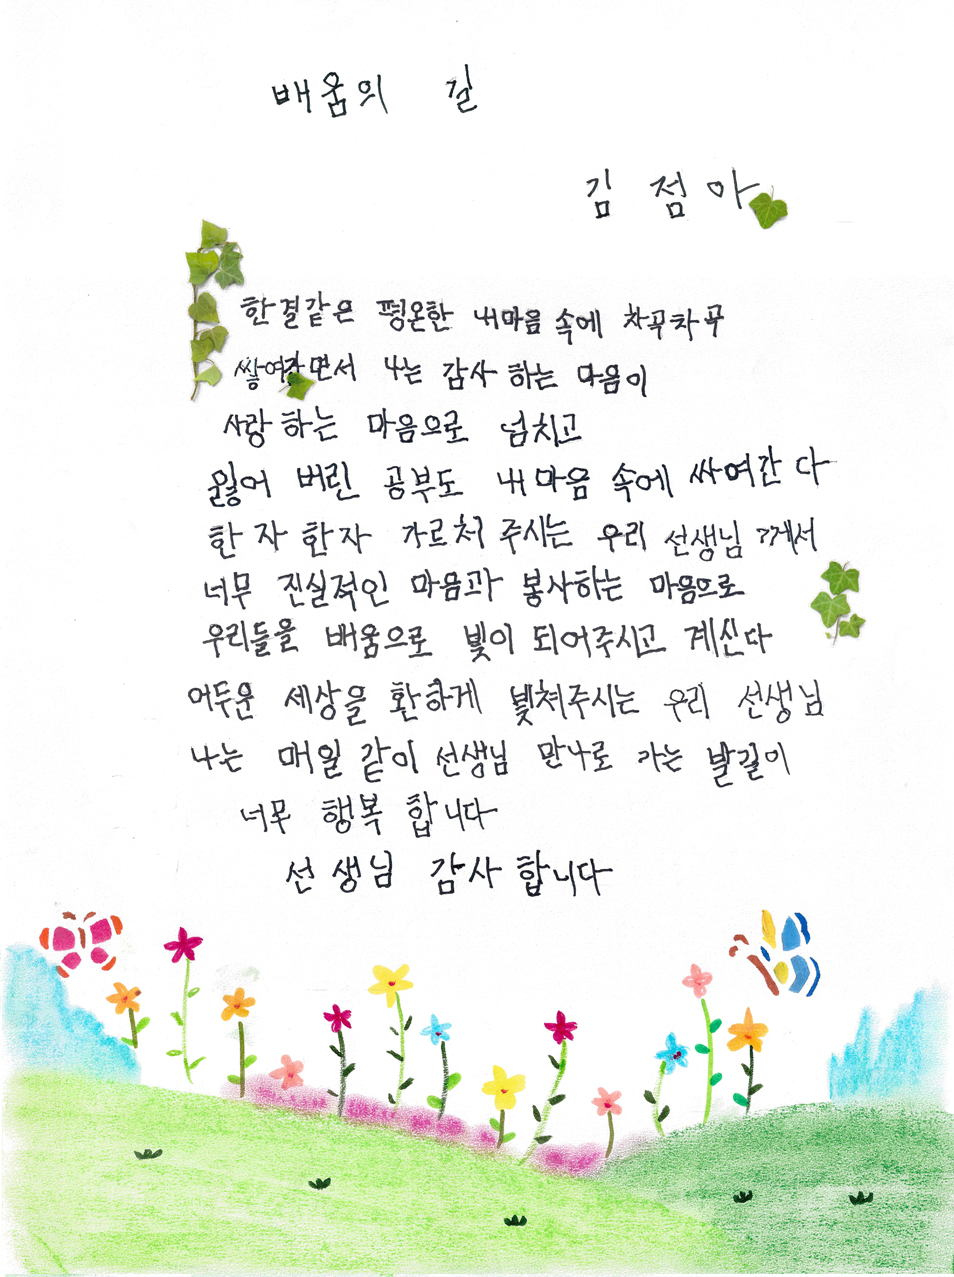 배움의 길
김 점 아
한결같은 평온한 내마음 속에 차곡차곡
쌓여가면서 나는 감사 하는 마음이
사랑 하는 마음으로 넘치고
잃어 버린 공부도 내 마음 속에 싸여간 다
한 자 한 자 가르처 주시는 우리 선생님 께서
너무 진실적인 마음과 봉사하는 마음으로
우리들을 배움으로 빛이 되어주시고 계신다
어두운 세상을 환하게 빛쳐주시는 우리 선생님
나는 매일 같이 선생님 만나로 가는 발길이
너무 행복 합니다
선 생님 감사 합니다